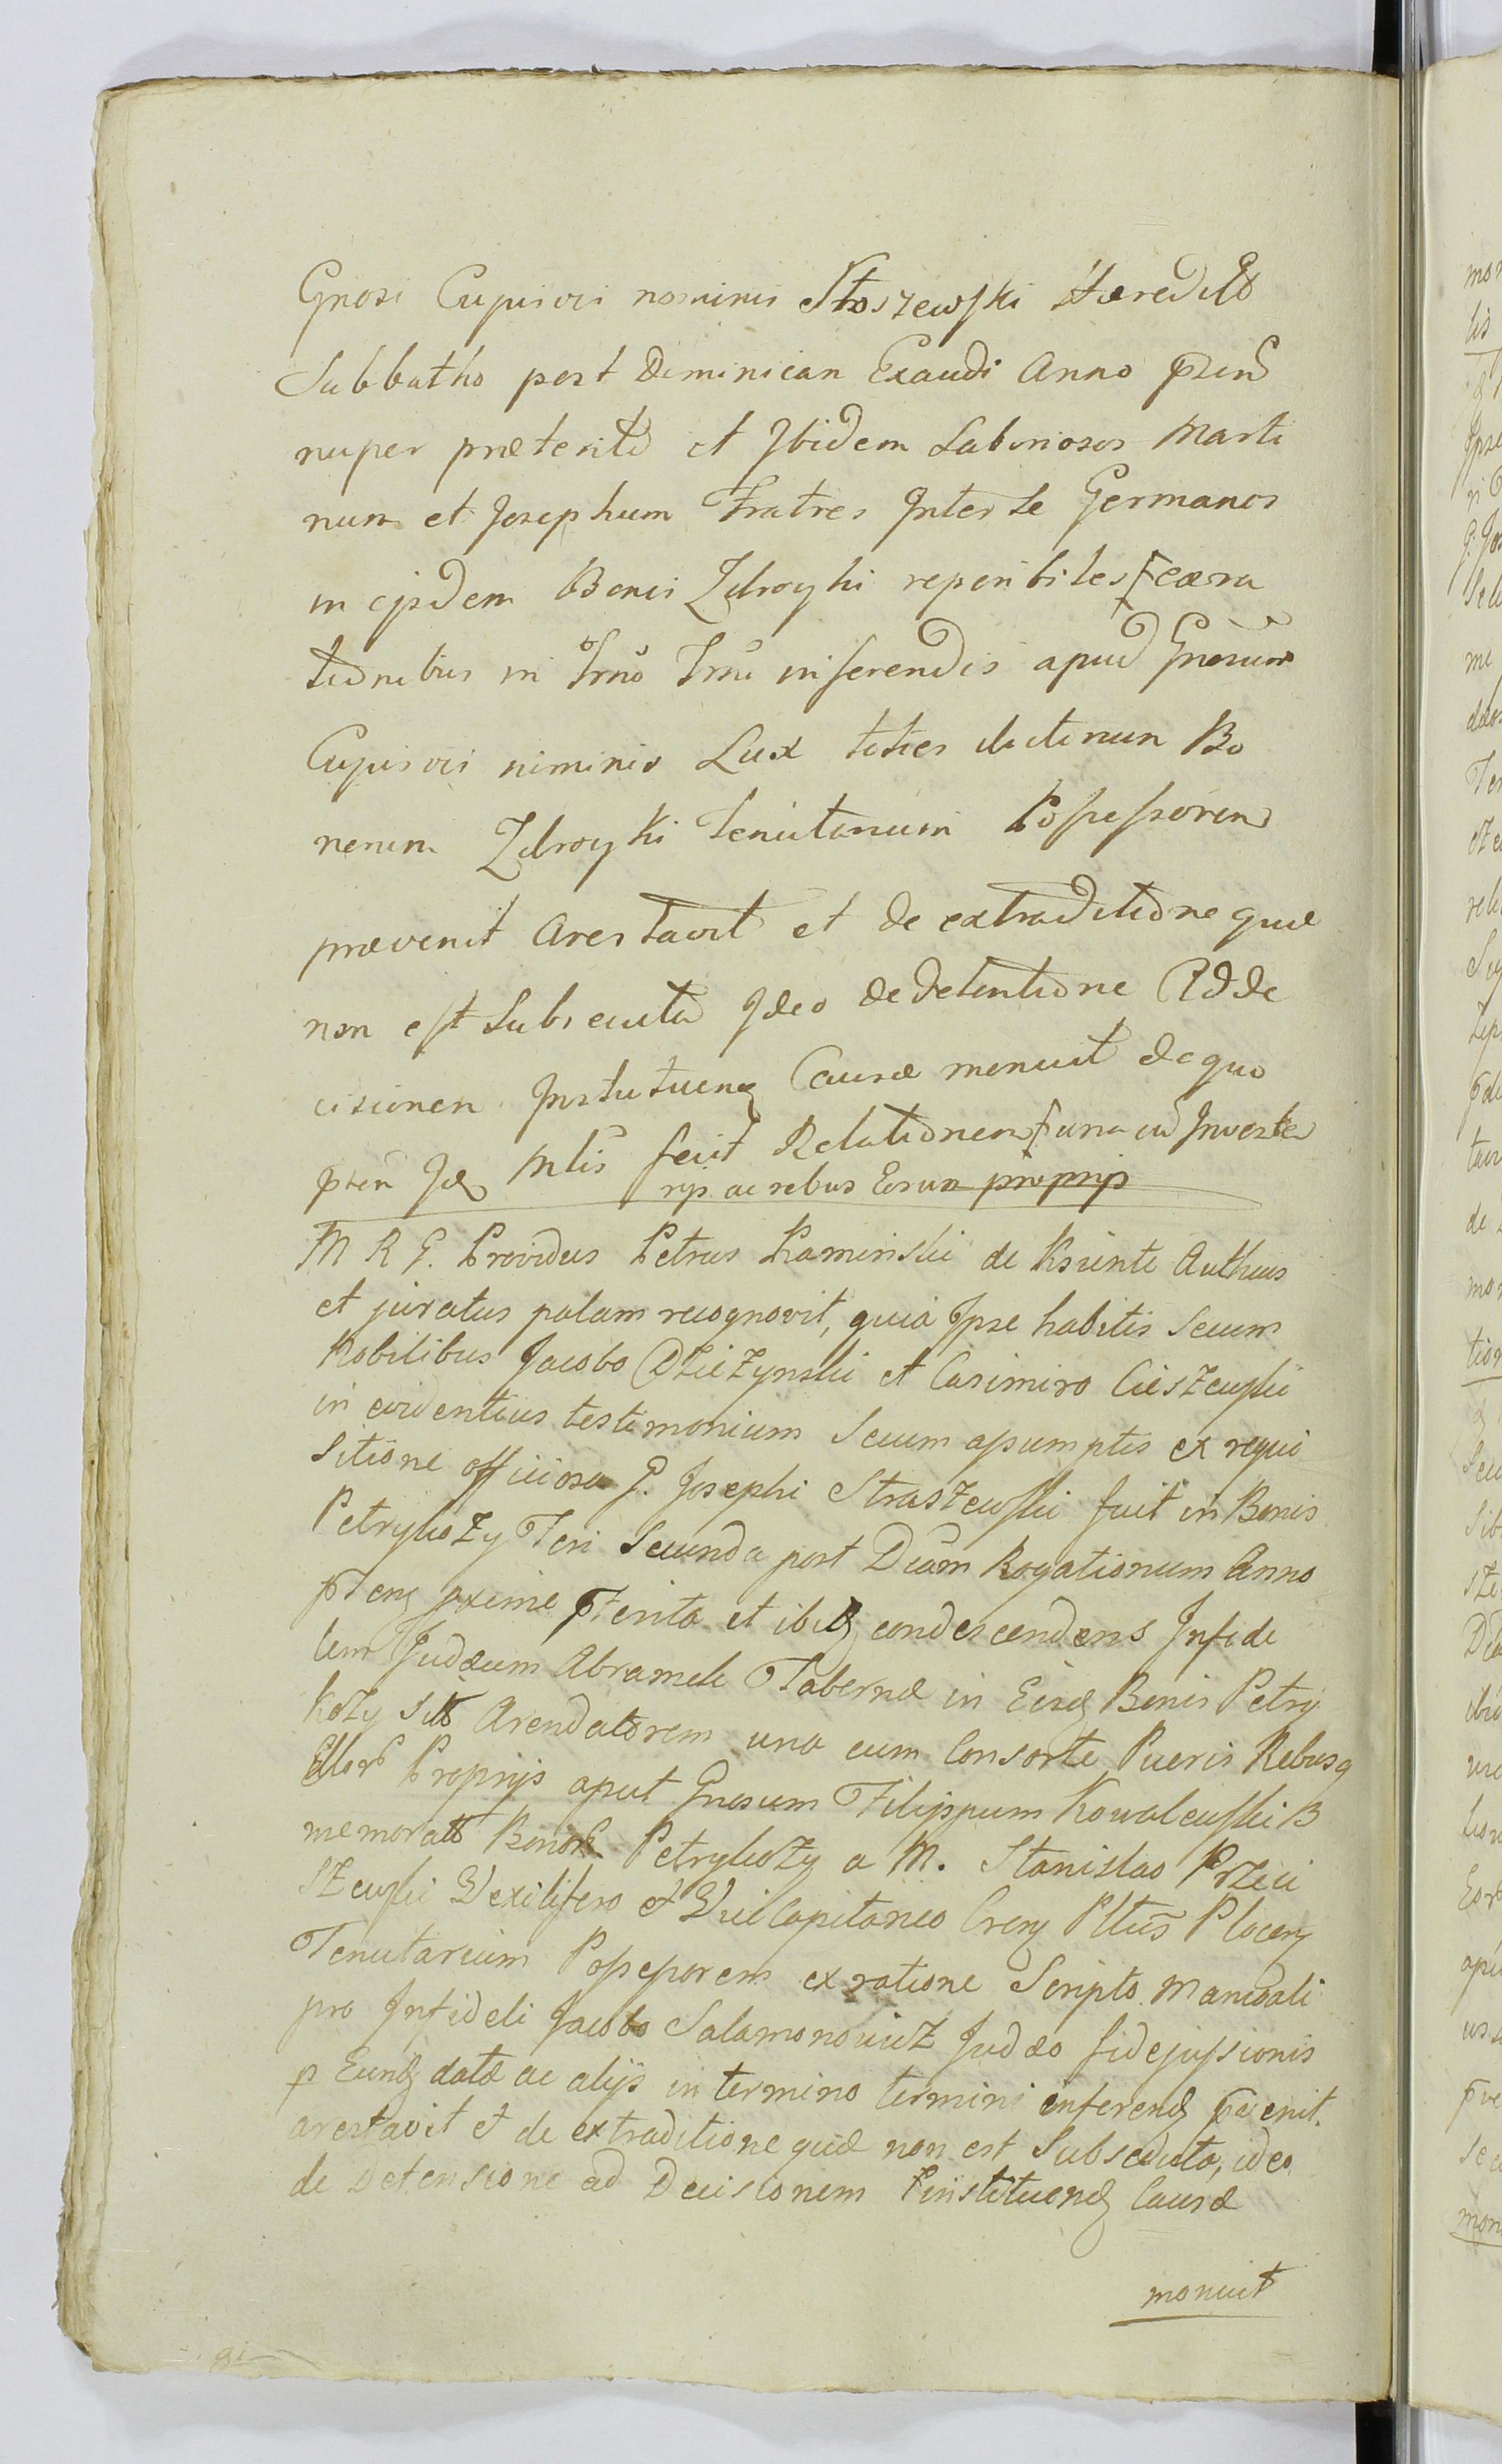 Gnosi Cujusvis nominis Stroszewski Hæredito
Sabbatho post Dominicam Exaudi Anno pzen
nuper præterito et Ibidem Laboriosos Marti
num et Josephum Fratres Inter se Germanos
in ejsdem Bonis Zdroyki reperibiles ex ra
tionibus in Trno Trni inferendis apud Gnosum
Cujusvis nominis Lux toties dictorum Bo
norum Zdroyki Tenutarium Possessorem
prævenit Arestavit et de extraditione quæ
non est Subsecuta Ideo de detentione Ad de
cisionem Instituenę Causæ monuit de quo
pzen Idę Mlis fecit Relationem una cu Inventa
rijs ac rebus Eorum proprijs
M R G. Providus Petrus Kaminski de Ksiente Authcus
et juratus palam recognovit, quia Ipse habitis secum
Nobilibus Jacobo Dzieżynski et Casimiro Cieszewski
in evidentius testimonium Secum assumptis ex requi
sitione officiosa G. Josephi Straszewski fuit in Bonis
Petrykozy Feri Secunda post Dcam Rogationum Anno
pzenę pxime pterita et ibidę condescendens Infide
lem Judæum Abramek Tabernæ in Eisdę Bonis Petry
kozy sitæ Arendatorem una cum Consorte Pueris Rebusq
Illor Proprijs aput Gnosum Filippum Kowalewski B
memorato Bonor Petrykozy a M. Stanislao Przeci
szewski Vexilifero et Vice Capitaneo Crenę Pltus Plocenę
Tenutarium Possessorem ex ratione Scripto Manuali
pro Infideli Jacobo Salamonowicz Judæo fidejussionis
p Eundę datæ ac alijs in termino termini inferendę pvenit.
arestavit et de extraditione quæ non est Subsecuta, ideo
de Detensione ad Decisionem Instituendę Causæ
monuit